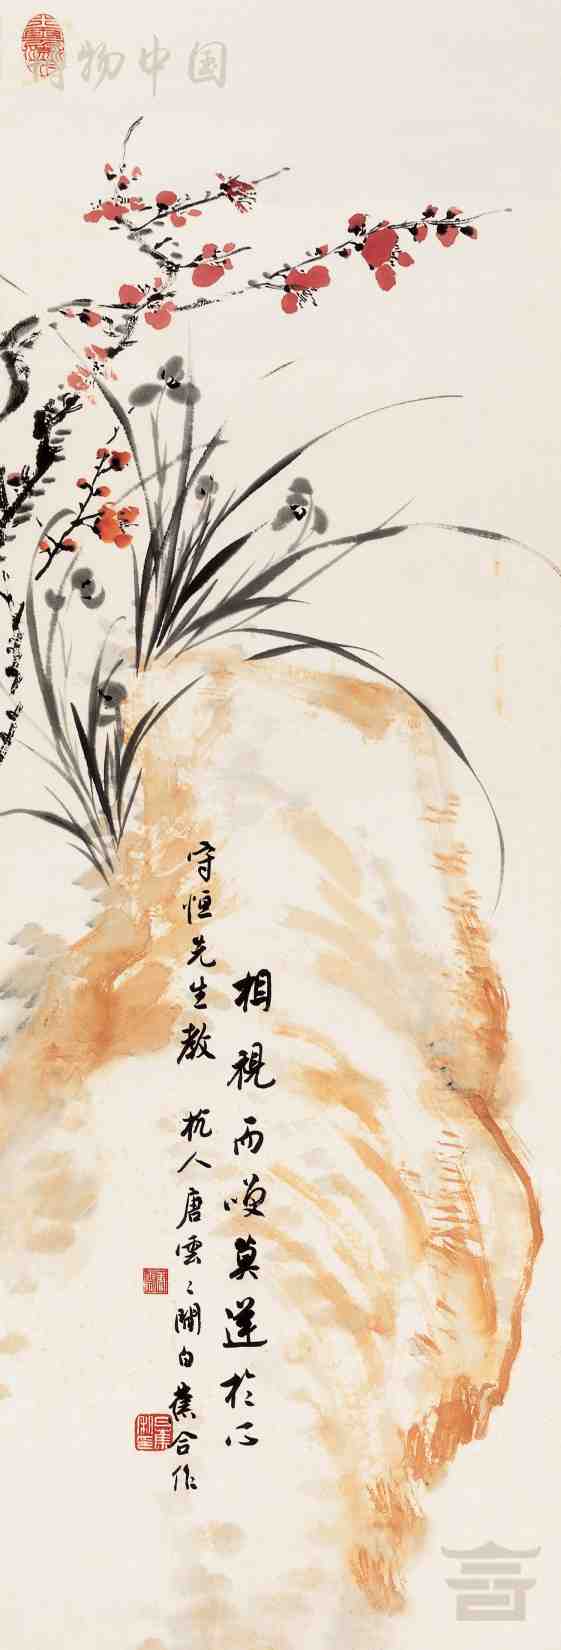 博物中国
相視而咲莫逆於心
守恒先生教 杭人唐雲〻間白蕉合作